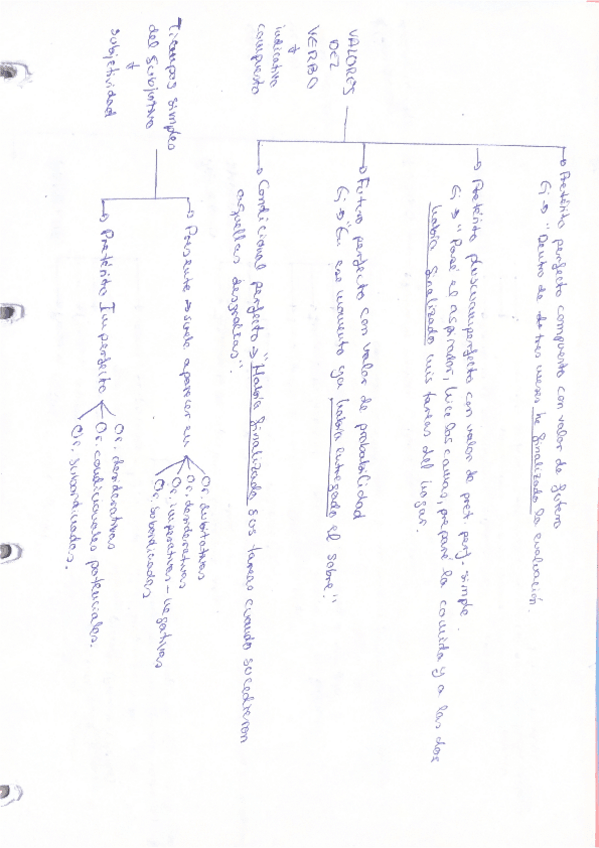 VALORES
DEL
VERBO
indicativo
compuesto
→ Pretérito perfecto compuesto con valor de futuro
Ej → "Dentro de tres meses he finalizado la evaluación.
→ Pretérito pluscuamperfecto con valor de pret. perf. simple.
Ej → "Pasé el aspirador, hice las camas, preparé la comida y a las dos
había finalizado mis tareas del hogar.
→ Futuro perfecto con valor de probabilidad
Ej → "En ese momento ya había entregado el sobre."
→ Condicional perfecto → "Había finalizado sus tareas cuando sucedieron
aquellas desgracias".
Tiempos simples
del subjuntivo
subjetividad
→ Presente → suele aparecer en
Or. dubitativas
Or. desiderativas
Or. imperativas - negativas
Or. subordinadas
→ Pretérito Imperfecto
Or. desiderativas
Or. condicionales potenciales.
Or. subordinadas.